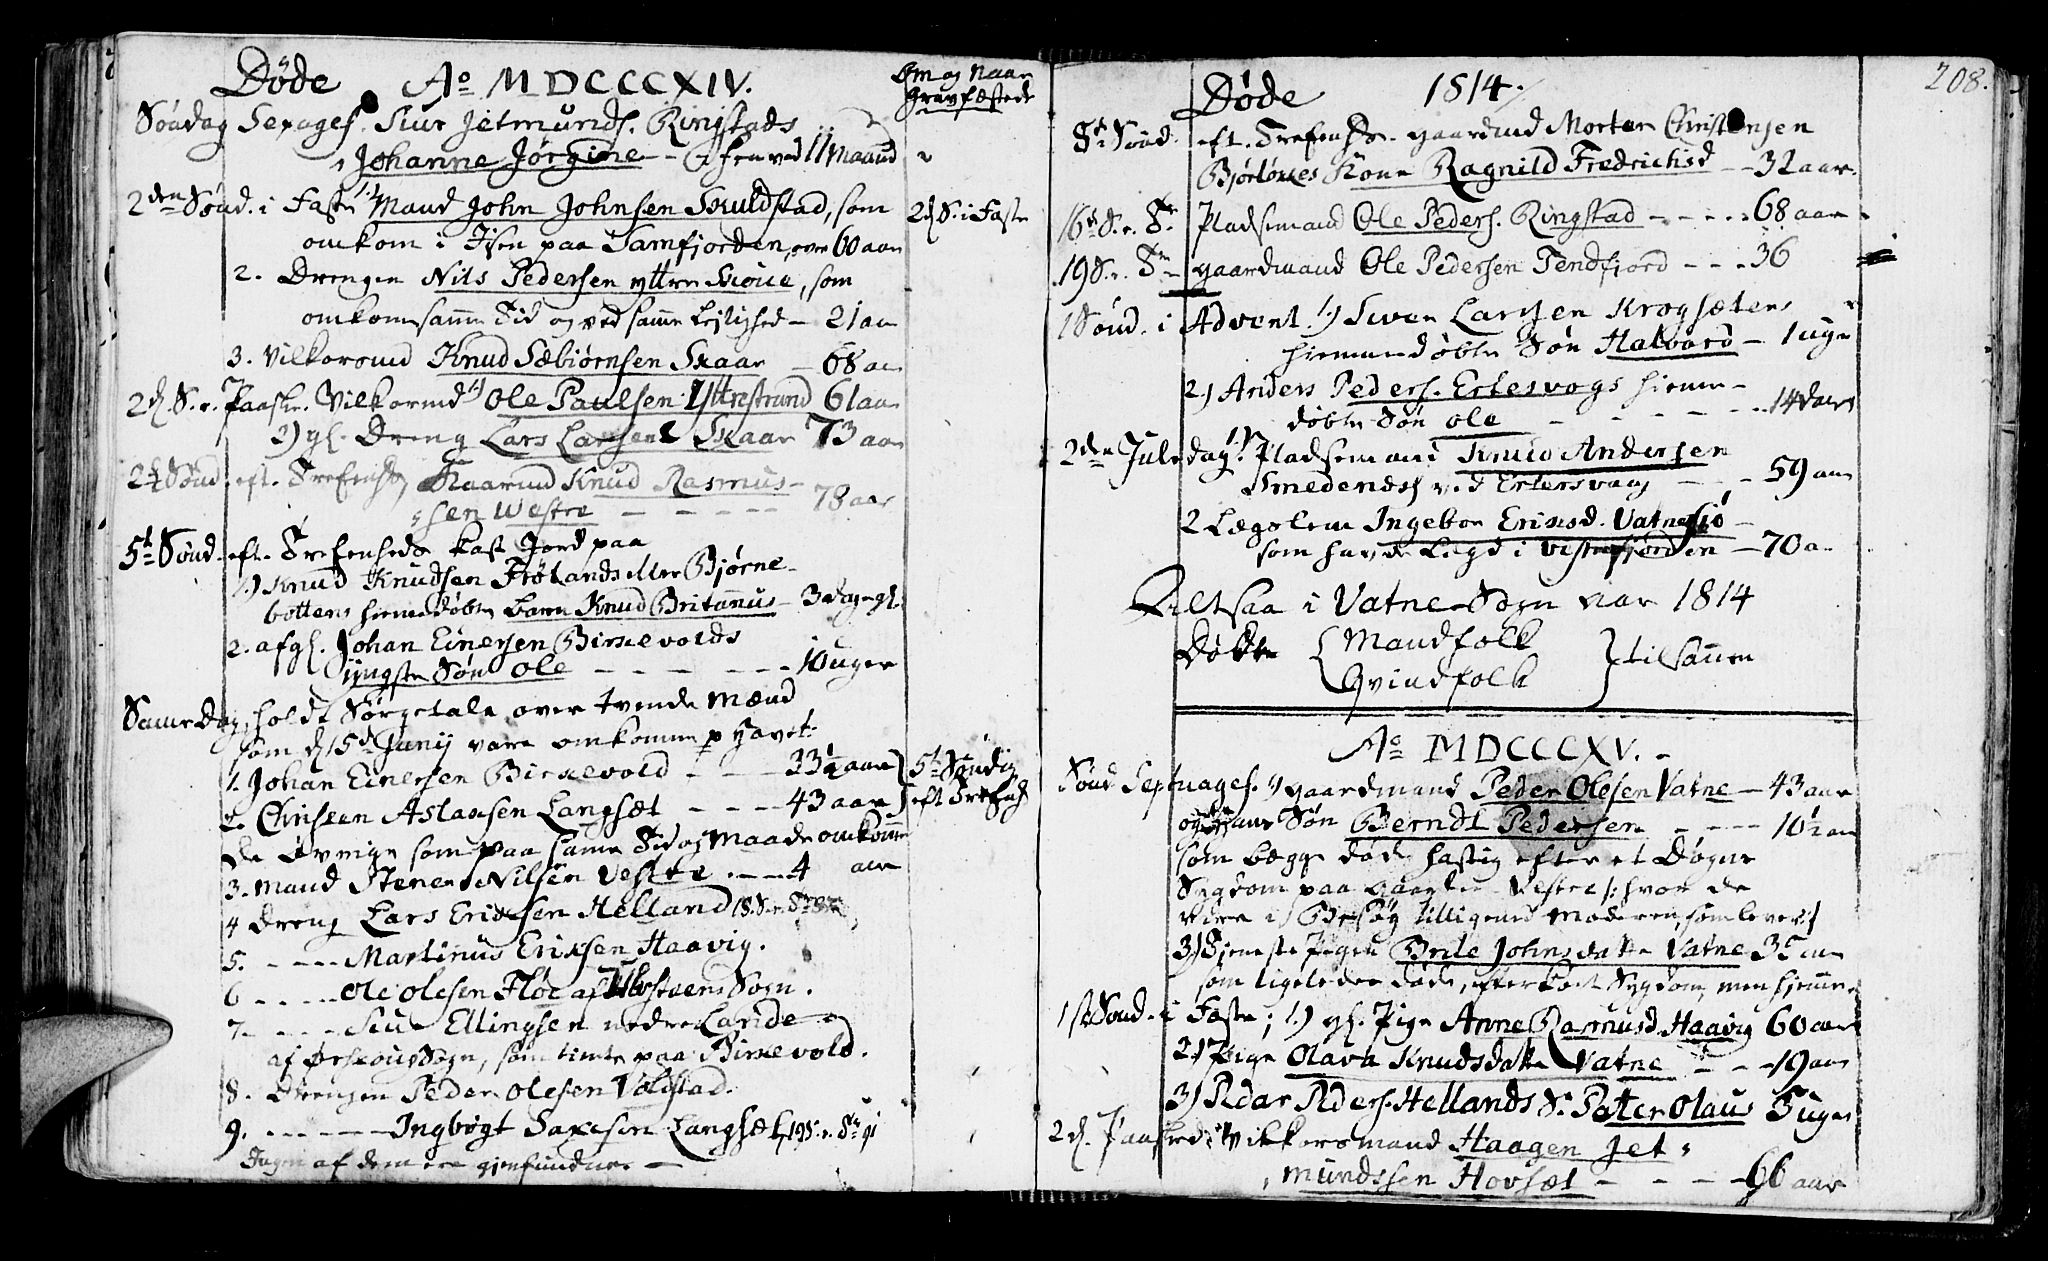 Døde Aº MDCCCXIV.
Om og Naar
Gravfæstede
Søndag Sexages. Siur Jetmunds. Ringstads
Johanne Jørgine - 11 Maaned
2den Sønd. i Faste 1.) Mand John Johnsen Skuldstad, som
2d S. i Faste
omkom i Isen paa Samfjorden, over 60 aar
2. Drengen Nils Pedersen yttre Skoue, som
omkom samme Tid og ved samme Leilighed - 21 aar
3. Vilkorsmd Knud Sæbiørnsen Skaar - 68 aar
2d. S. e. Paaske. Vilkormd 1) Ole Paulsen Yttrestrand 61 aar
2) gl. Dreng Lars Larsen Skaar 73 aar
2d Sønd. eft. Trefenh. Kaarmd Knud Rasmus-
sen Westre - - - - - 78 aar
5te Sønd. eft. Trefenheds kast Jord paa
1.) Knud Knudsen Frølands eller Bjørne-
bottens hiemmedøbte barn Knud Britanus - 3 dage gl.
2. afgl. Johan Einersen Birkevolds
yngste Søn Ole - - - - - 10 uger
Samme Dag, holdt Sørgetale over tvende Mænd
som d. 15d Junij vare omkomne p Havet:
1. Johan Einersen Birkevold - - - 33½ aar
5te Søndag
2. Christen Aslaksen Langsæt - - - 43 aar
eft Trefenh
De øvrige som paa samme Tid og Maade omkomne
3. Mand Stener Nilsen Vestre - - 4 aar
4 Dreng Lars Eriksen Helland 18. S. e. Tr
5. - - - Martinus Eriksen Haavig.
6 - - - - Ole Olesen Fløe af Sogn.
7 - - - - Siur Ellingsen nedre Lande
af Ørskoug Sogn, som tiente paa Birkevold.
8. Drengen Peder Olesen Volstad.
9. - - - - - Ingbrigt Saxesen Langsæt, 19 S. e. Tr
Ingen af dem ere gienfundne -
208.
Døde 1814.
8de Sønd. eft. Trefenh. gaardmd Morten Christensen
Bjørløkkes Kone Ragnild Fredrichsd - - 32 aar.
16de S. e. Tr. Pladsemand Ole Peders. Ringstad - - - - 68 aar
19 S. e. Tr - gaardmand Ole Pedersen Tendfjord - - - 36
1 Sønd. i Advent. 1.) Siver Larsen Krogsætens
hiemmedøbte Søn Halvard - 1 uge
2) Anders Peders. Ertesvogs hiemme-
døbte Søn Ole - - - - - 14 dage
2den Juledag. 1) Pladsemand Knud Andersen
Smedenæs ved Ertesvaag - - - 59 aar
2 Lægslem Ingebor Eriksd. Vatnesiø -
som havde Legd i Vestrefjorden - 70 a
Altsaa i Vatne Sogn var 1814
Døbte { Mandfolk
Qvindfolk } tilsammen
Aº MDCCCXV. -
Sønd Septuages. 1) gaardmand Peder Olesen Vatne - 43 aar
og hans Søn Berndt Pedersen - - - 10½ aar
som begge døde hastig efter et Døgns
Sygdom paa Gaarden Vestre /: hvor de
vare i Besøg tilligemed Moderen, som lever :/
3) Tieneste Pigen Brite Johnsdatter Vatne 35 aar
som ligeledes døde, efter kort Sygdom, men hjemme
1ste Sønd. i Faste; 1.) gl. Pige Anne Rasmusd. Haavig 60 aar
2) Pige Olava Knudsdatter Vatne - - - 19 aar
3) Peder Peders. Hellands S. Peter Olaus 7 uger
2d. Paaskedag Vilkorsmand Haagen Jet-
mundssen Hovsæt - - - - 66 aar